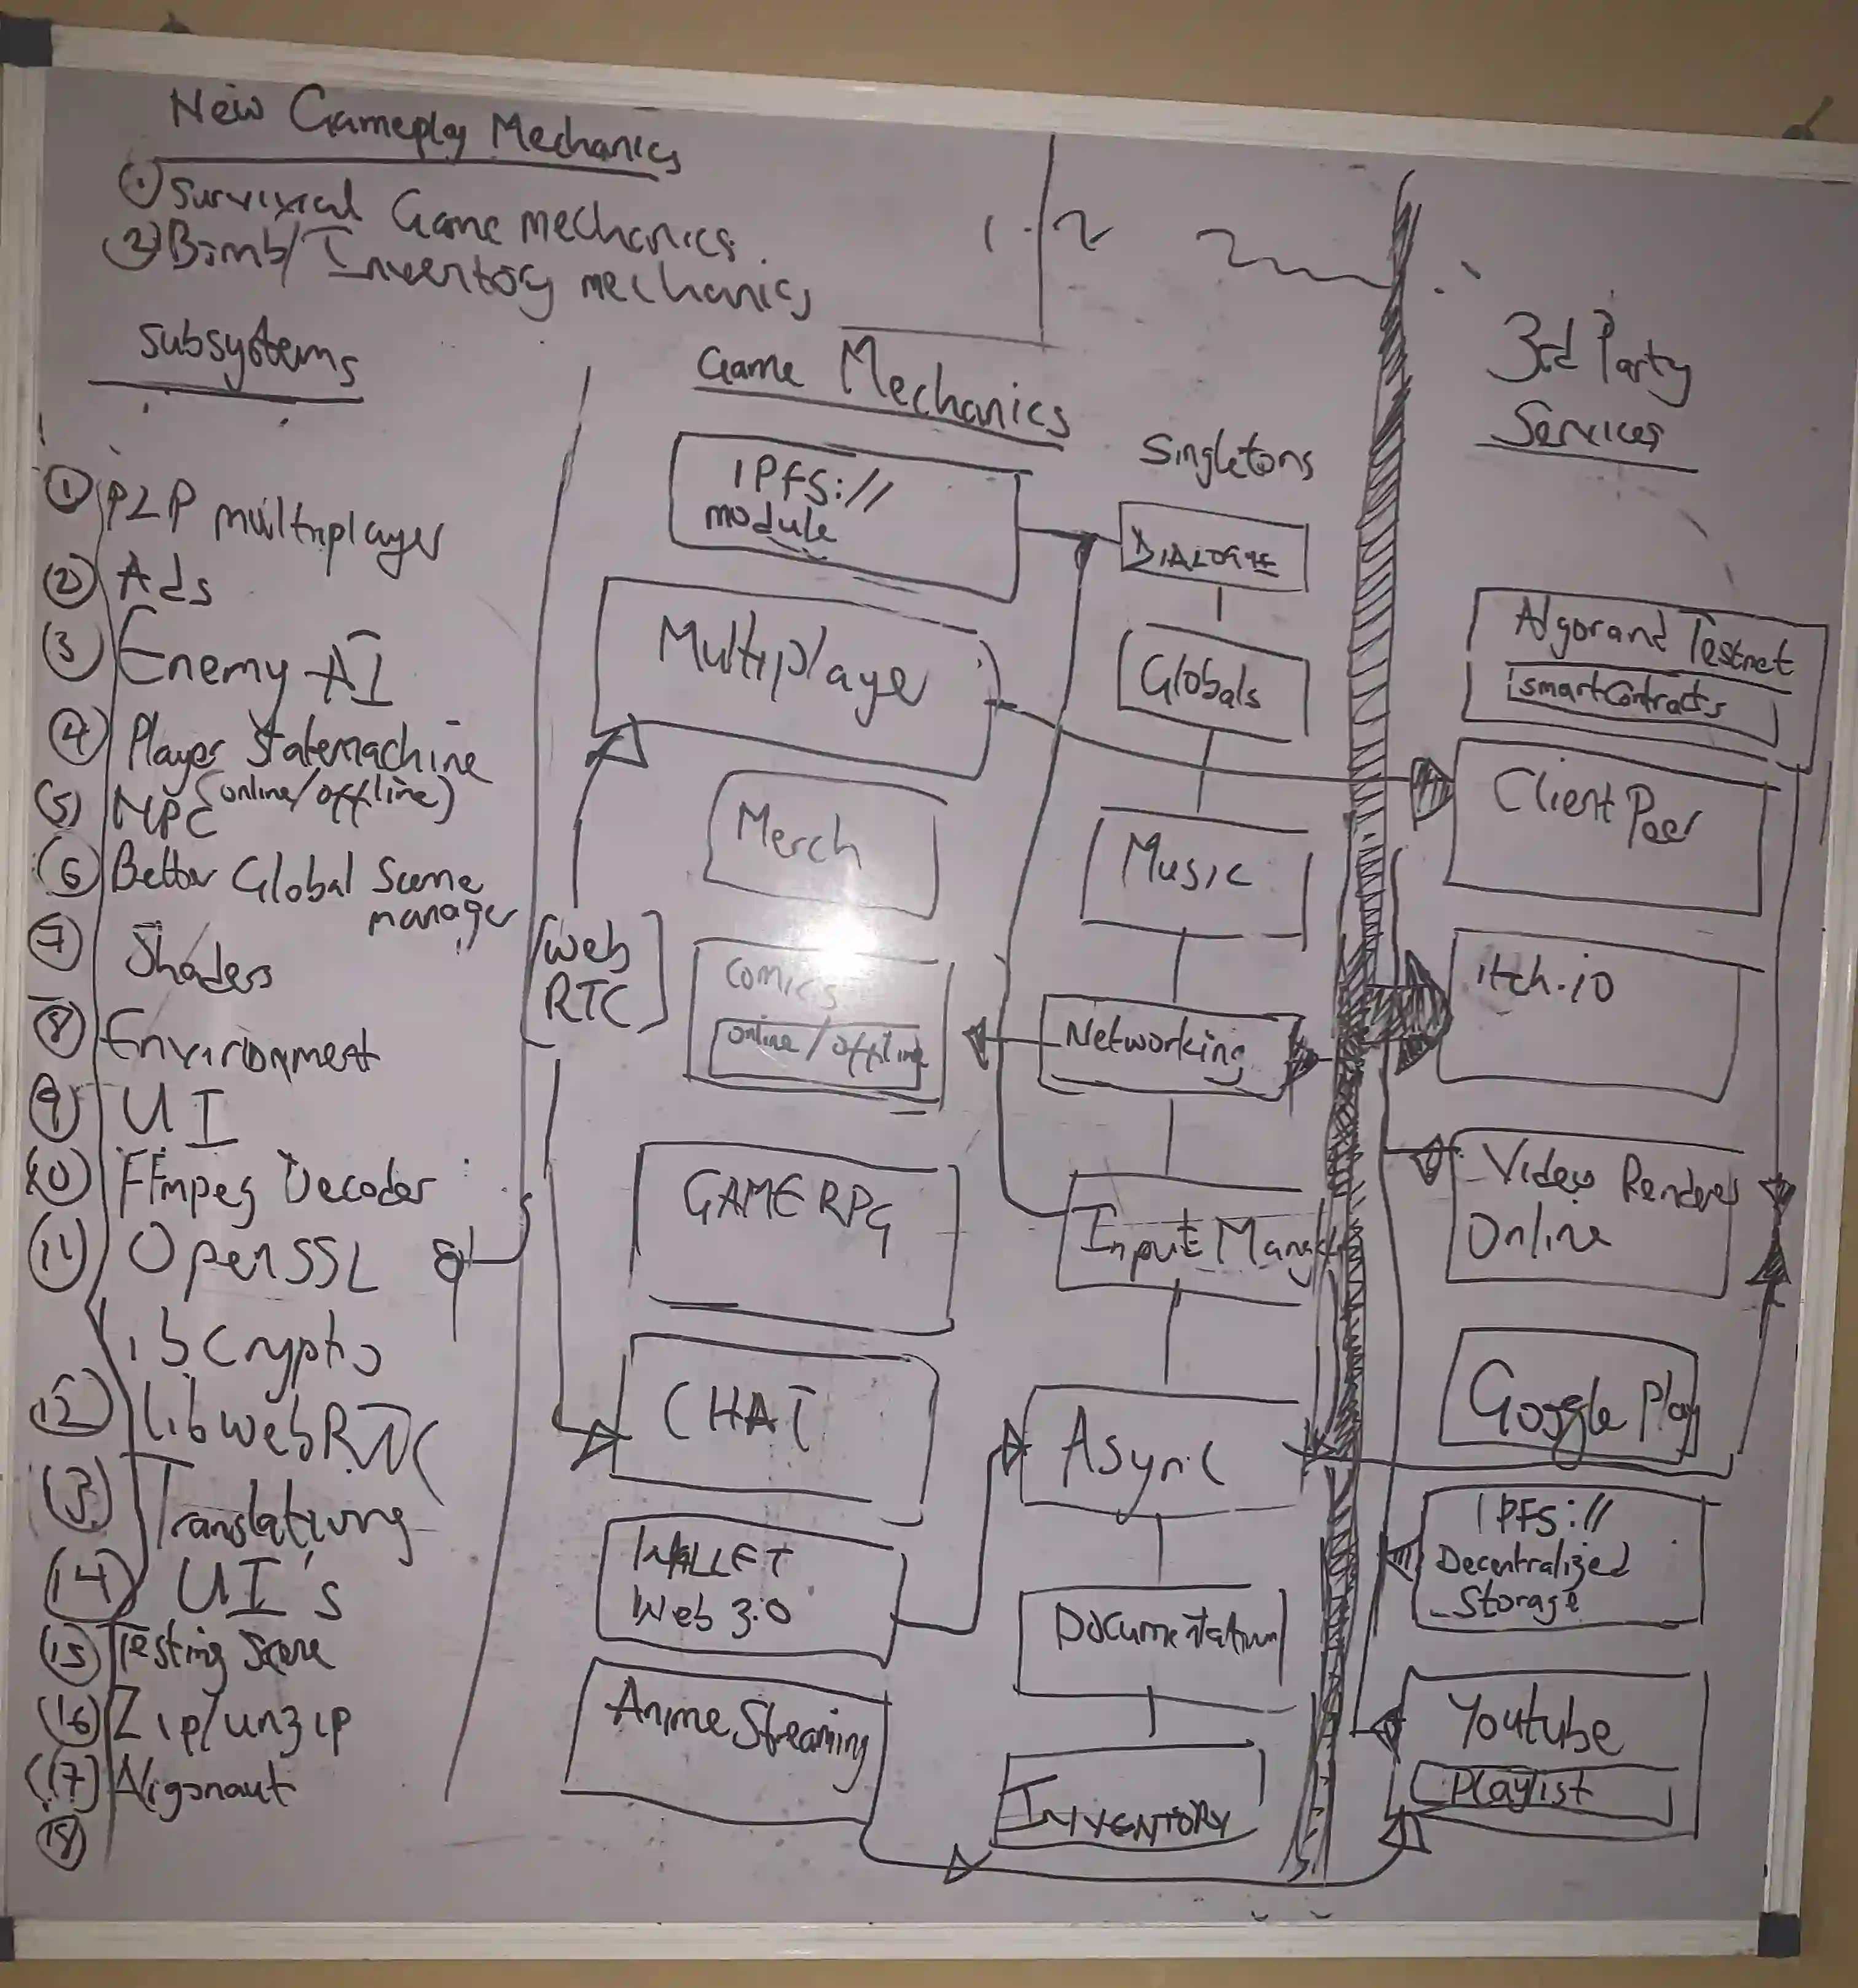 New Gameplay Mechanics
① Survivical Game mechanics
② Bomb/Inventory mechanics
Subsystems
① P2P multiplayer
② Ads
③ Enemy AI
④ Player Statemachine
(online/offline)
⑤ NPC
⑥ Better Global Scene
manager
⑦ Shaders
⑧ Environment
⑨ UI
⑩ FFmpeg Decoder
⑪ OpenSSL &
libCrypto
⑫ libwebRTC
⑬ Translations
⑭ UI's
⑮ Testing Scene
⑯ Zip/unzip
⑰ Algonaut
⑱
Web
RTC
Game Mechanics
IPFS://
module
Multiplayer
Merch
Comics
online/offline
GAME RPG
CHAT
WALLET
Web 3.0
Anime Streaming
Singletons
DIALOGUE
Globals
Music
Networking
Input Manager
Async
Documentation
INVENTORY
3rd Party
Services
Algorand Testnet
smartContracts
Client Peer
itch.io
Video Renderer
Online
Google Play
IPFS://
Decentralized
Storage
Youtube
Playlist